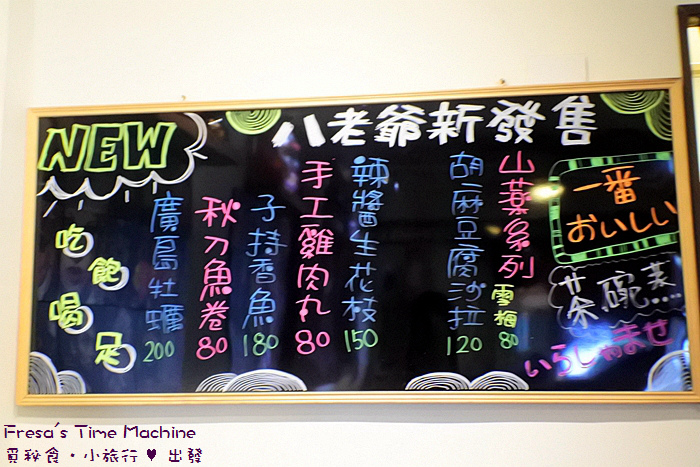 NEW
八老爺新發售
一番
おいしい
茶碗蒸....
いらしゃませ
山藥系列
雪梅 80
胡麻豆腐沙拉 120
辣醬生花枝 150
手工雞肉丸 80
子持香魚 180
秋刀魚卷 80
廣島牡蠣 200
吃飽
喝足
Fresa's Time Machine
覓秘食·小旅行 ♥ 出發